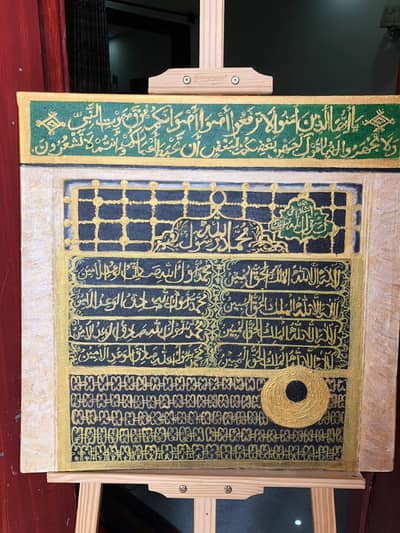 يا أيها الذين آمنوا لا ترفعوا أصواتكم فوق صوت النبي
ولا تجهروا له بالقول كجهر بعضكم لبعض أن تحبط أعمالكم وأنتم لا تشعرون
محمد رسول الله
لا إله إلا الله الملك الحق المبين محمد رسول الله صادق الوعد الأمين
لا إله إلا الله الملك الحق المبين محمد رسول الله صادق الوعد الأمين
لا إله إلا الله الملك الحق المبين محمد رسول الله صادق الوعد الأمين
لا إله إلا الله الملك الحق المبين محمد رسول الله صادق الوعد الأمين